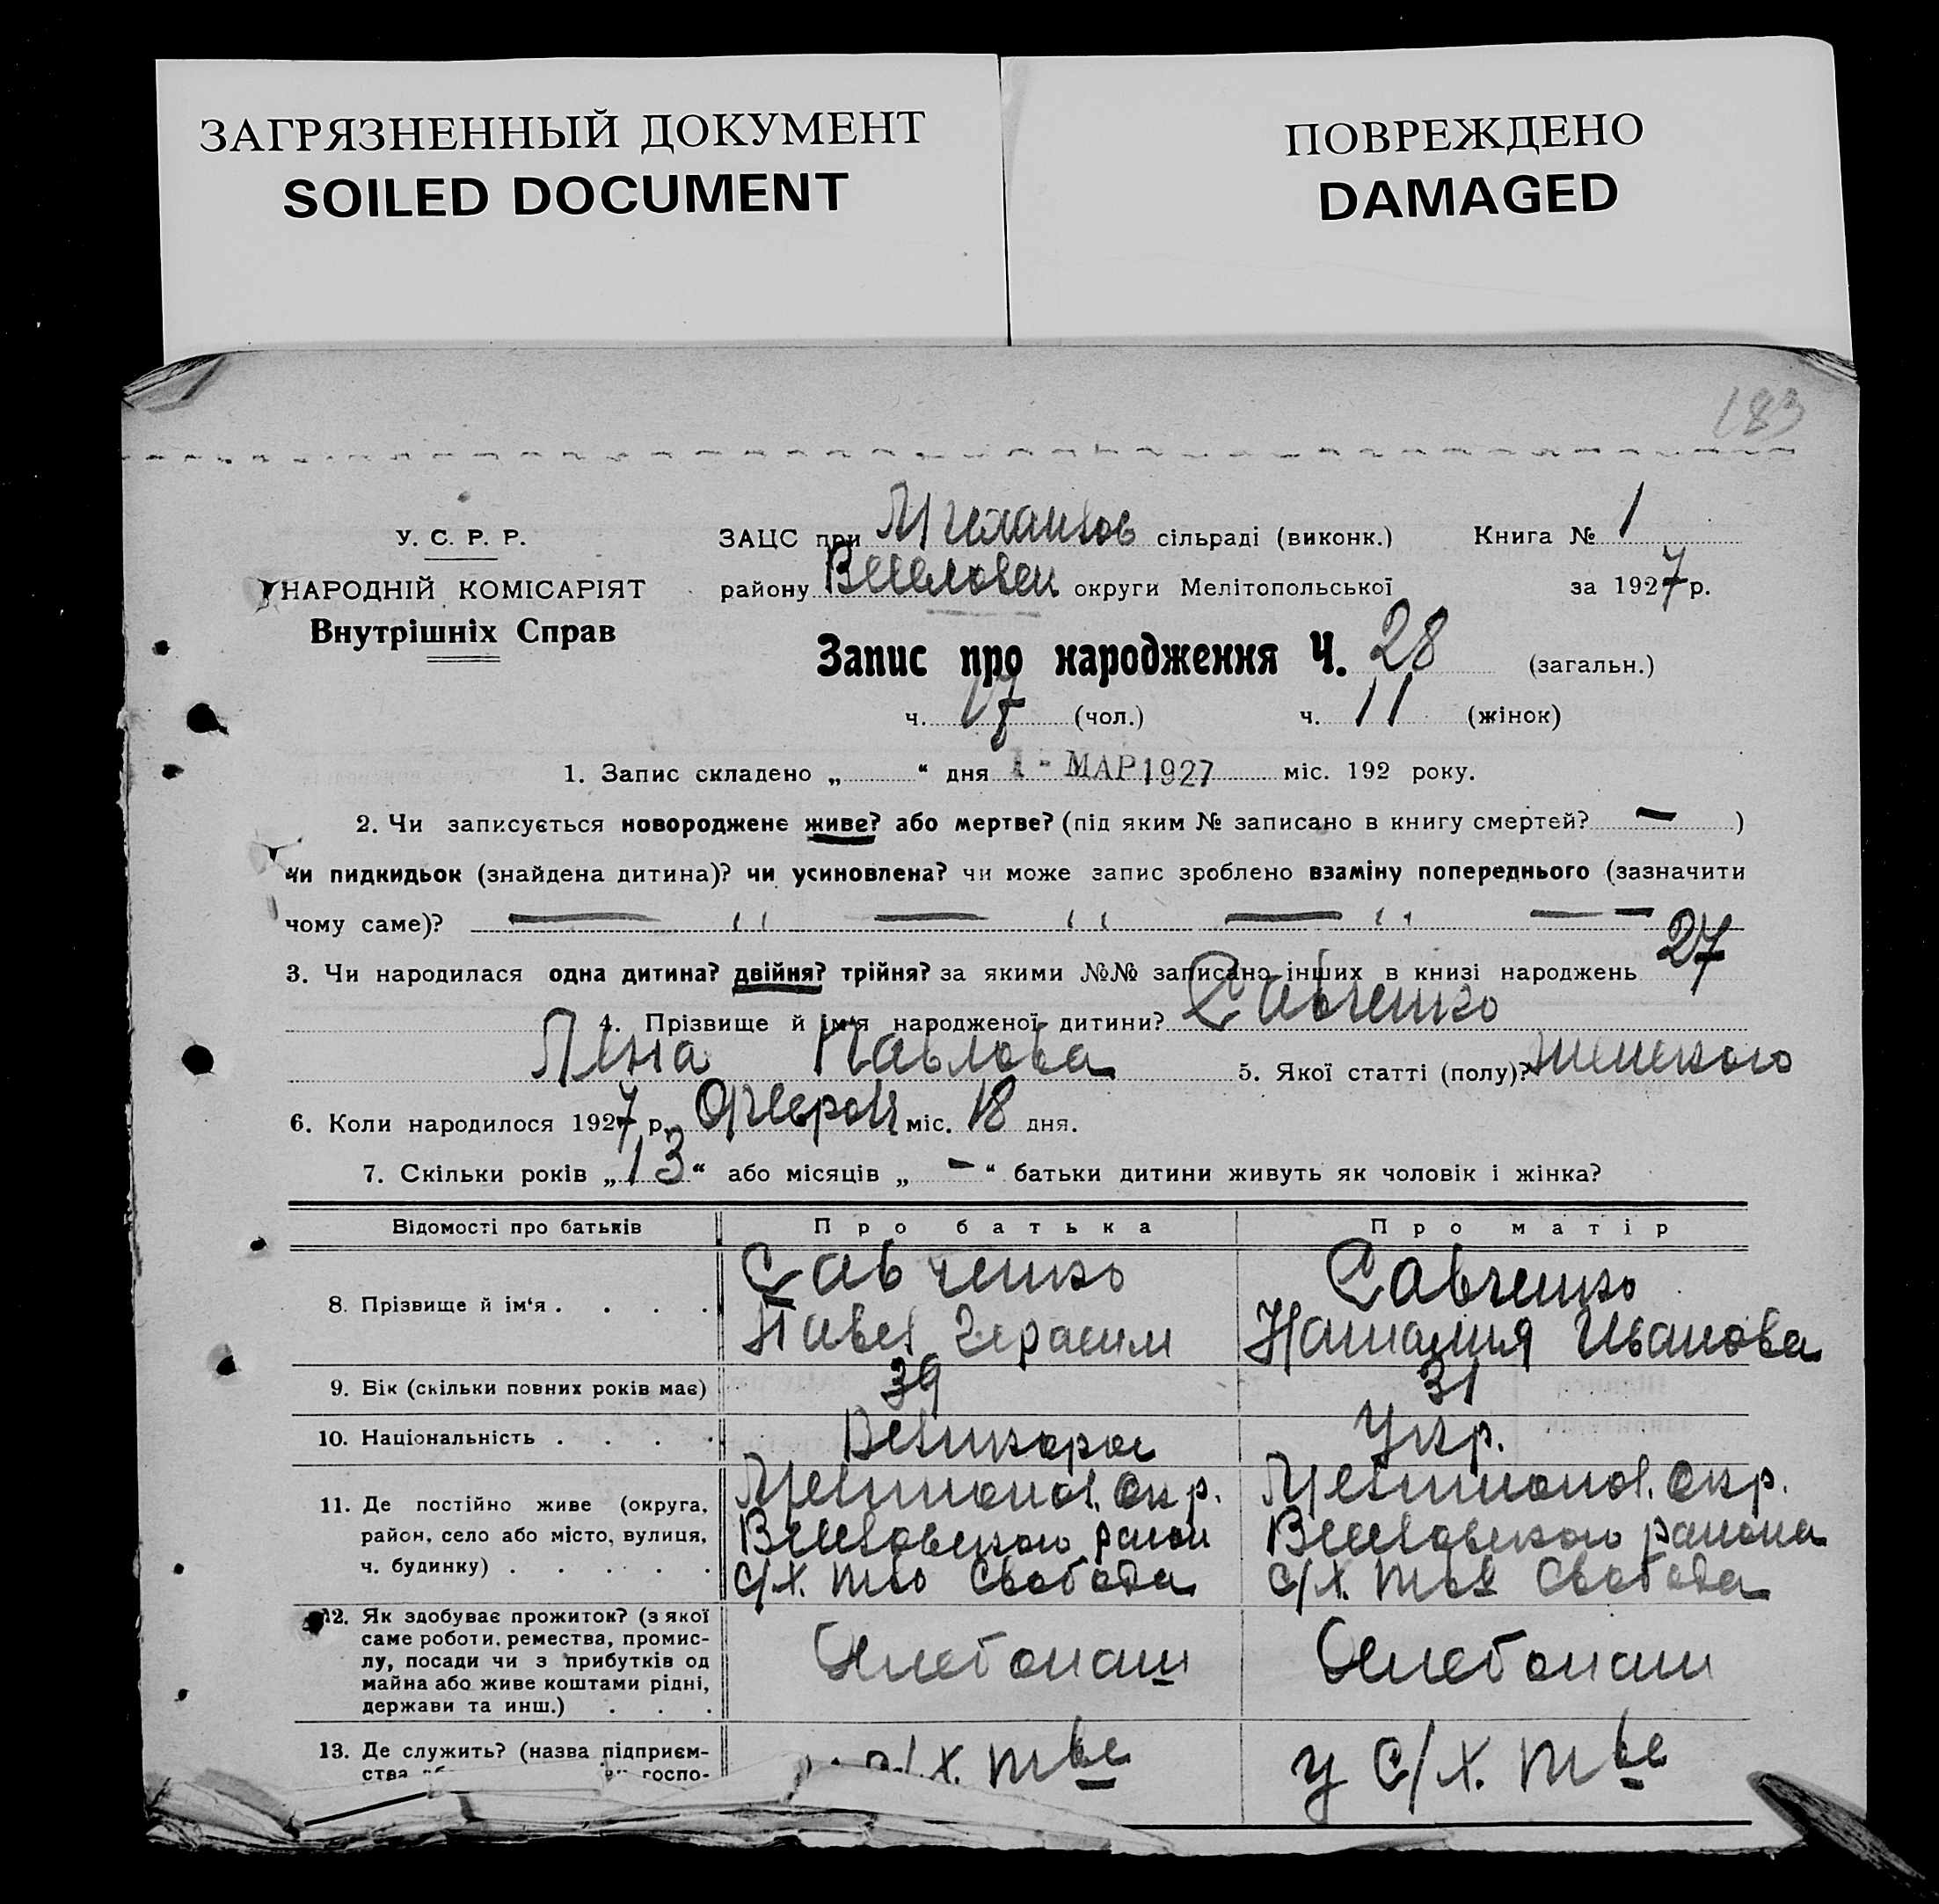 ЗАГРЯЗНЕННЫЙ ДОКУМЕНТ
SOILED DOCUMENT
ПОВРЕЖДЕНО
DAMAGED
183
У. С. Р. Р.
НАРОДНІЙ КОМІСАРІЯТ
Внутрішніх Справ
ЗАЦС при Михайлов сільраді (виконк.) Книга № 1
району Веселовск округи Мелітопольської за 1927 р.
Запис про народження Ч. 28 (загальн.)
ч. 17 (чол.) ч. 11 (жінок)
1. Запис складено „ “ дня 1 - МАР 1927 міс. 192 року.
2. Чи записується новороджене живе? або мертве? (під яким № записано в книгу смертей? — )
чи пидкидьок (знайдена дитина)? чи усиновлена? чи може запис зроблено взаміну попереднього (зазначити
чому саме)? — ‘‘ — ‘‘ — ‘‘ — —
3. Чи народилася одна дитина? двійня? трійня? за якими №№ записано інших в книзі народжень 27
4. Прізвище й ім‘я народженої дитини? Савченко
Павлова 5. Якої статті (полу)? женского
6. Коли народилося 1927 р. Февраля міс. 18 дня.
7. Скільки років „13“ або місяців „—“ батьки дитини живуть як чоловік і жінка?
Відомості про батьків Про батька Про матір
8. Прізвище й ім‘я . . . . Савченко Павел Герасим Савченко Наталия Иванова
9. Вік (скільки повних років має) 39 31
10. Національність . . . . Великорос Укр.
11. Де постійно живе (округа, Мелитопол. окр. Мелитопол. окр.
район, село або місто, вулиця, Веселовского район Веселовского района
ч. будинку) . . . . . С/х. т-во Свобода С/х. Свобода
12. Як здобуває прожиток? (з якої
саме роботи, ремества, промис-
лу, посади чи з прибутків од Хлебопаш Хлебопаш
майна або живе коштами рідні,
держави та инш.) . . .
13. Де служить? (назва підприєм- с/х. тве у С/х. тве
ства госпо-